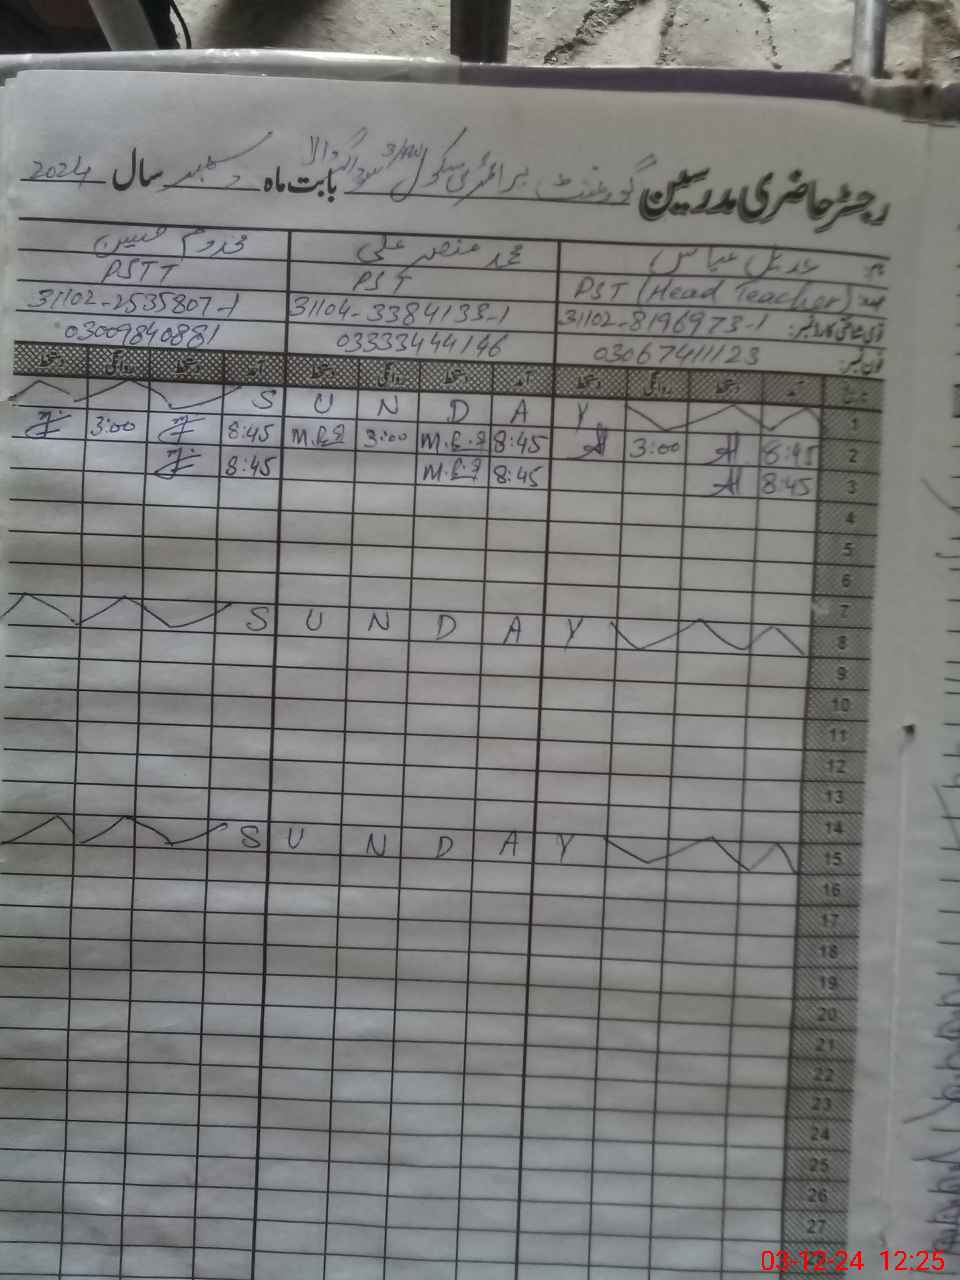 رجسٹر حاضری مدرسین گورنمنٹ پرائمری سکول بابت ماہ دسمبر سال 2024
نام عدیل عباس محمد منصر علی مخدوم حسین
عہدہ PST (Head Teacher) PST PSTT
قومی شناختی کارڈ نمبر: 31102-8196973-1 31104-3384133-1 31102-2535807-1
فون نمبر: 03067411123 03333444146 03009840881
آمد دستخط روانگی دستخط آمد دستخط روانگی دستخط آمد دستخط روانگی دستخط
1 S U N D A Y
2 8:45 3:00 8:45 3:00 8:45 3:00
3 8:45 8:45 8:45
4
5
6
7
8 S U N D A Y
9
10
11
12
13
14
15 S U N D A Y
16
17
18
19
20
21
22
23
24
25
26
27
03-12-24 12:25